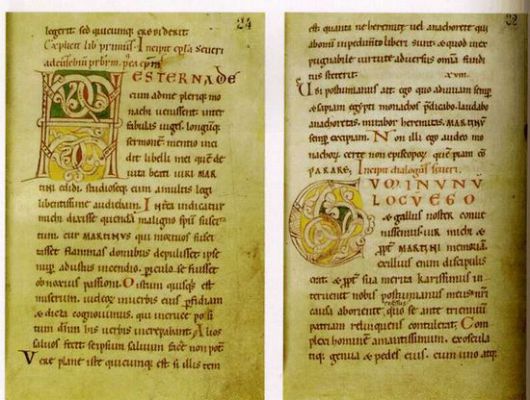 24
legerit sed quicumq; crediderit
Explicit lib primus. Incipit epła severi
ad eusebiũ prbrm, p̃ea epm̃
HESTERNA DE
cum ad me pleriq; mo
nachi venissent. inter
fabulas iuges, longũq;
sermonẽ. mentio inci
dit libelli mei quẽ de
vita beati viri MAR
tini edidi. studioseq; eum a multis legi
libentissime audiebam. Interea indicatur
michi dixisse quendã maligno spũ suscita
tum. cur MARTINUS qui mortuos suscita
sset flammas domibus depulisset ipse
nup adustus incendio, piculosę fuisset
obnoxius passioni. O istum quisquis est
miserum. iudeoꝝ in verbis eius pfidiam
& dicta cognovimus. qui in cruce posi
tum dñm his verbis increpabant. Alios
salvos fecit. seipsum salvum facere non pot.
Vere plane iste quicumq; est si illis tem
est quanta heremitę vel anachoretę qui
ab omi impedimento liberi
pugnabile virtute adversus omnia
dus steterit. XVIII.
Ubi postumianus ait. ergo quo advivam semp
& sapiam egypti monachos p̃dicabo. laudabo
anachoretas. mirabor heremitas. MARTINŨ
semp excipiam. Non illi ego audeo mo
nachoꝝ certe non episcopoꝝ quẽpiam cõ
PARARE. Incipit dialogus severi.
CUM IN UNU
LOCU EGO
& gallus noster conve
nissemus. vir michi &
ppt MARTINI memoriã
ex illius enim discipulis
erat. & ppt sua merita karissimus. in
tervenit nobis postumianus mei
causa ab oriente, quo se ante triennium
patriam relinquens contulerat.
plexi hominẽ amantissimum. exoscula
tiq; genua & pedes eius. cum uno atq;